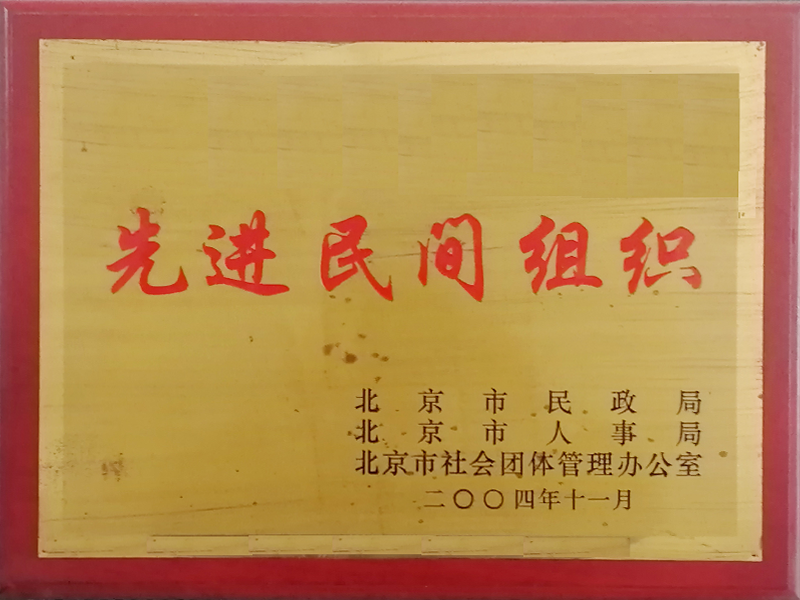 先进民间组织
北京市民政局
北京市人事局
北京市社会团体管理办公室
二〇〇四年十一月